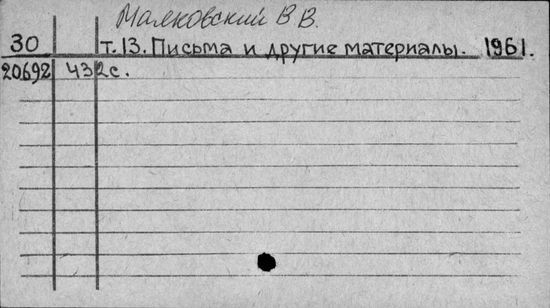 Маяковский В В.
30 т. 13. Письма и другие материалы. 1961.
20692 432с.